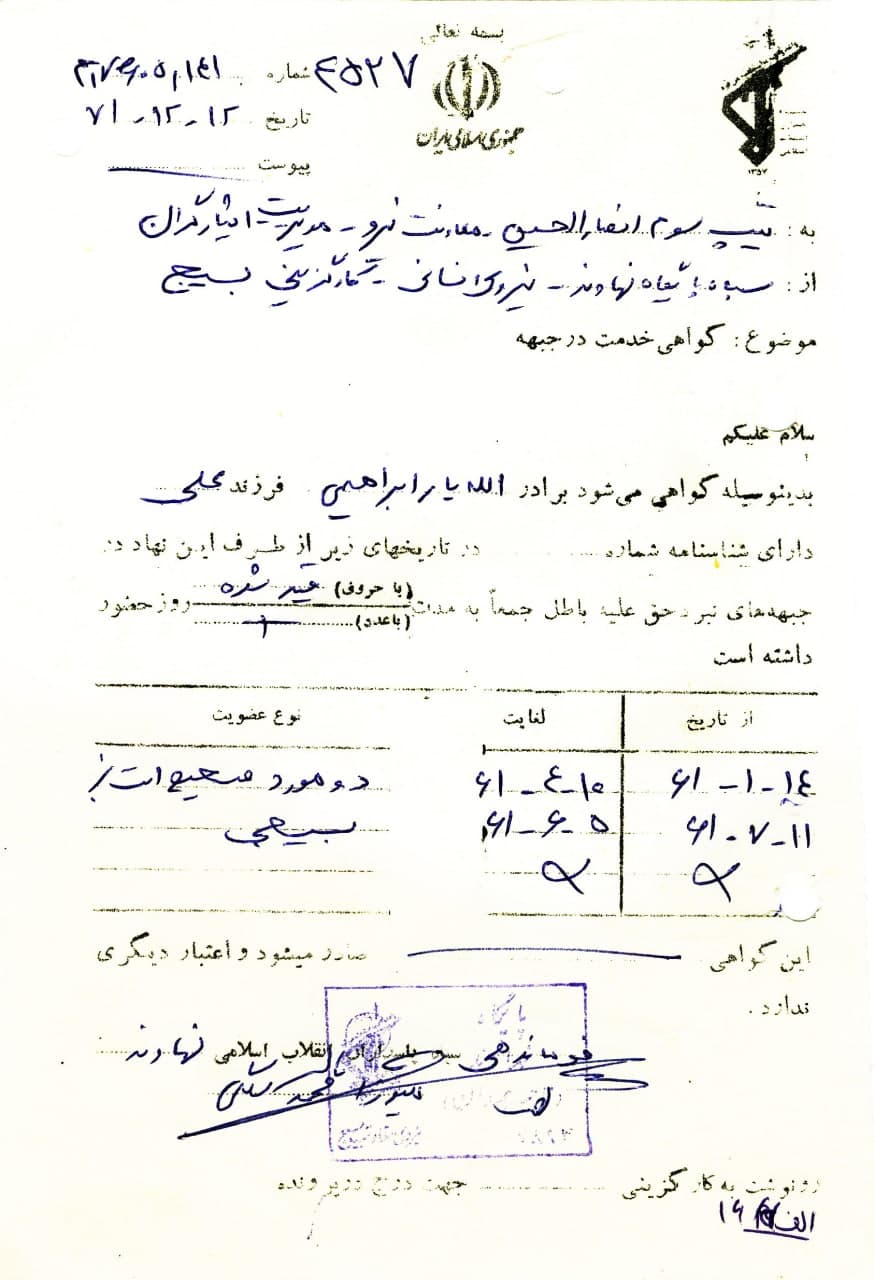 بسمه تعالی
جمهوری اسلامی ایران
۱۳۵۷
شماره ۴۵۲۷
تاریخ ۷۱-۱۲-۱۲
پیوست
به: تیپ سوم انصارالحسین - معاونت نیرو - مدیریت ایثارگران
از: سپاه پاسداران نهاوند - نیروی انسانی - کارگزینی بسیج
موضوع: گواهی خدمت در جبهه
سلام علیکم
بدینوسیله گواهی می‌شود برادر الله یار ابراهیمی فرزند علی
دارای شناسنامه شماره در تاریخهای زیر از طرف این نهاد در
جبهه‌های نبرد حق علیه باطل جمعاً به مدت (با حروف) قید شده (باعدد) روز حضور
داشته است
از تاریخ لغایت نوع عضویت
۶۱-۱-۱۴ ۶۱-۴-۱۵ دو مورد
۶۱-۷-۱۱ ۶۱-۶-۵ بسیجی
این گواهی صادر میشود و اعتبار دیگری
ندارد.
فرماندهی سپاه پاسداران انقلاب اسلامی نهاوند
رونوشت به کارگزینی جهت درج در پرونده
الف